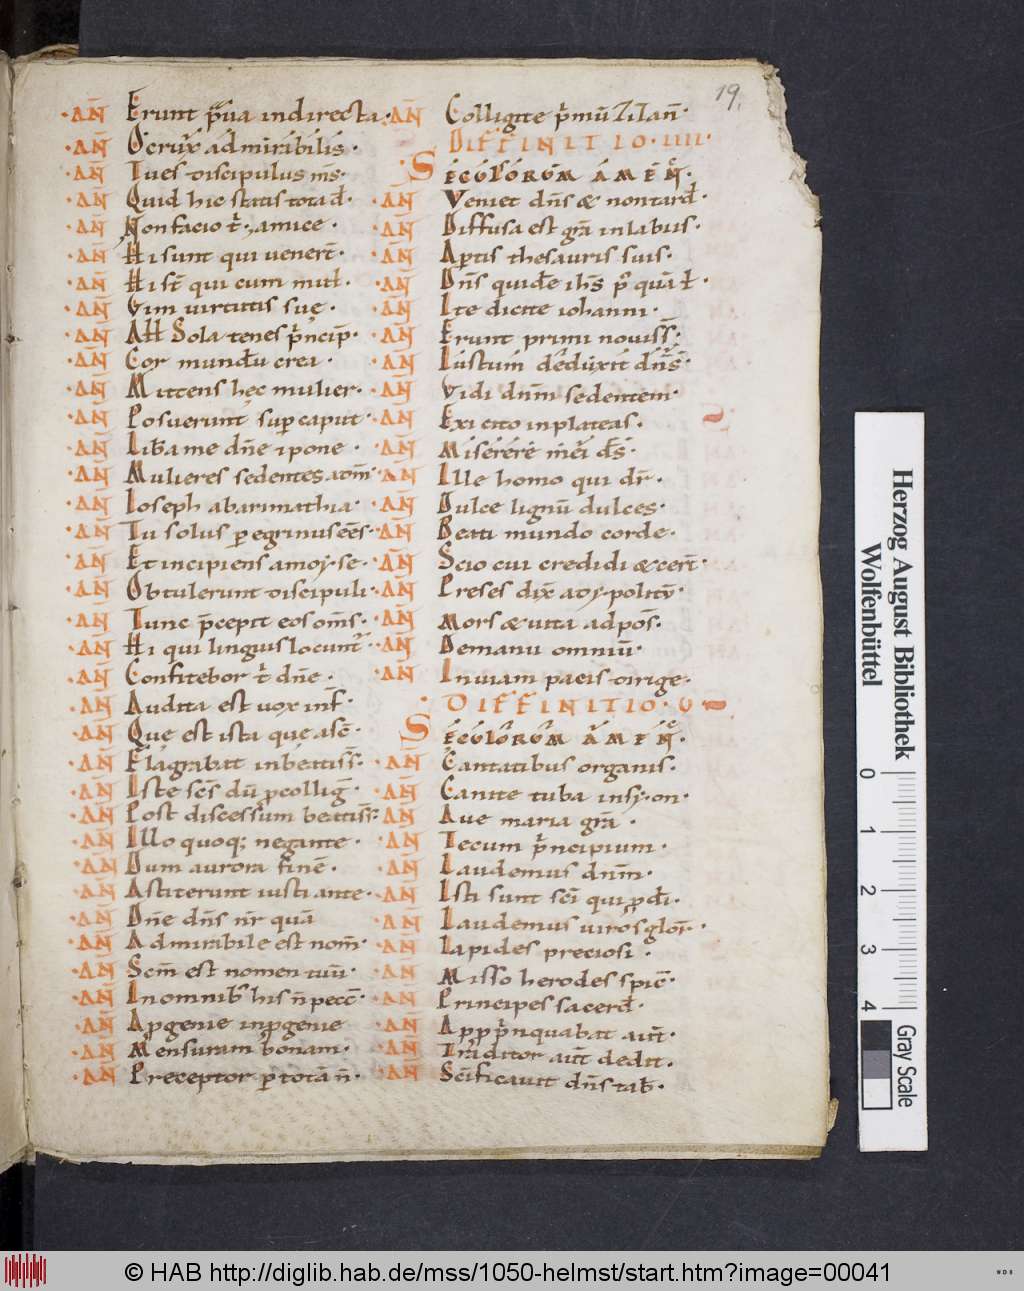 19.
·AN̄ Erunt p̄ua indirecta·
·AN̄ O crux admirabilis·
·AN̄ Tu es discipulus m̄s·
·AN̄ Quid hic statis tota d̄·
·AN̄ Non facio t̄· amice·
·AN̄ Hi sunt qui uener̄t·
·AN̄ Hi st̄ qui cum mul̄·
·AN̄ Gim uirtutis suę·
·AN̄ All Sola tenes p̄ncip̄·
·AN̄ Cor mundū crea·
·AN̄ Mittens hęc mulier·
·AN̄ Posuerunt sup caput·
·AN̄ Libame dn̄e ⁊ pone·
·AN̄ Mulieres sedentes
·AN̄ Ioseph abarimathia·
·AN̄ Tu solus peregrinus eēs·
·AN̄ Et incipiens amoy·se·
·AN̄ Obtulerunt discipuli·
·AN̄ Tunc p̄cepit eos om̄s·
·AN̄ Hi qui linguis locunt̄·
·AN̄ Confitebor t̄ dn̄e·
·AN̄ Audita est uox
·AN̄ Que est ista que asc̄·
·AN̄ Flagrabat in beatiss̄·
·AN̄ Iste sc̄s dū p collig̅·
·AN̄ Post discessum beatiss̄·
·AN̄ Illo quoq; negante·
·AN̄ Dum aurora finē·
·AN̄ Astiterunt iusti ante·
·AN̄ Dn̄e dn̄s nr̄ quā
·AN̄ Admirabile est nom̄·
·AN̄ Scm̄ est nomen tuū·
·AN̄ In omnib; his n̄ pecc̄·
·AN̄ A pgenie in pgenie
·AN̄ Mensuram bonam·
·AN̄ Preceptor p totā n̄·
AN̄ Colligite p̄mū ZIZan̄·
DIFFINITIO·IIII·
SECULORUM AMEN·
·AN̄ Veniet dn̄s & non tard̄·
·AN̄ Diffusa est gr̄a in labiis·
·AN̄ Aptis thesauris suis·
·AN̄ Dn̄s quidē ih̄s p̄ quā l̄·
·AN̄ Ite dicite iohanni·
·AN̄ Erunt primi nouiss̄·
·AN̄ Iustum deduxit dn̄s·
·AN̄ Vidi dn̄m sedentem·
·AN̄ Exi cito in plateas·
·AN̄ Miserere mei ds̄·
·AN̄ Ille homo qui dr̄·
·AN̄ Dulce lignū dulces·
·AN̄ Beati mundo corde·
·AN̄ Scio cui credidi & cert̄·
·AN̄ Preses dix̄
·AN̄ Mors & uita adpos̄·
·AN̄ Demanu omniū·
·AN̄ In uiam pacis dirige·
DIFFINITIO·V
SECULORUM AMEN·
·AN̄ Cantatibus organis·
·AN̄ Canite tuba in sy·on·
·AN̄ Aue maria gr̄a·
·AN̄ Tecum p̄ncipium·
·AN̄ Laudemus dn̄m·
·AN̄ Isti sunt sc̄i qui pd̄·
·AN̄ Laudemus uiros glor̄·
·AN̄ Lapides preciosi·
·AN̄ Misso herodes spic̄·
·AN̄ Principes sacerd̄·
·AN̄ Appp̄nquabat aut̄·
·AN̄ Traditor aut̄ dedit·
·AN̄ Sc̄ificauit dn̄s tab̄·
Herzog August Bibliothek
Wolfenbüttel
0 1 2 3 4
Gray Scale
© HAB http://diglib.hab.de/mss/1050-helmst/start.htm?image=00041